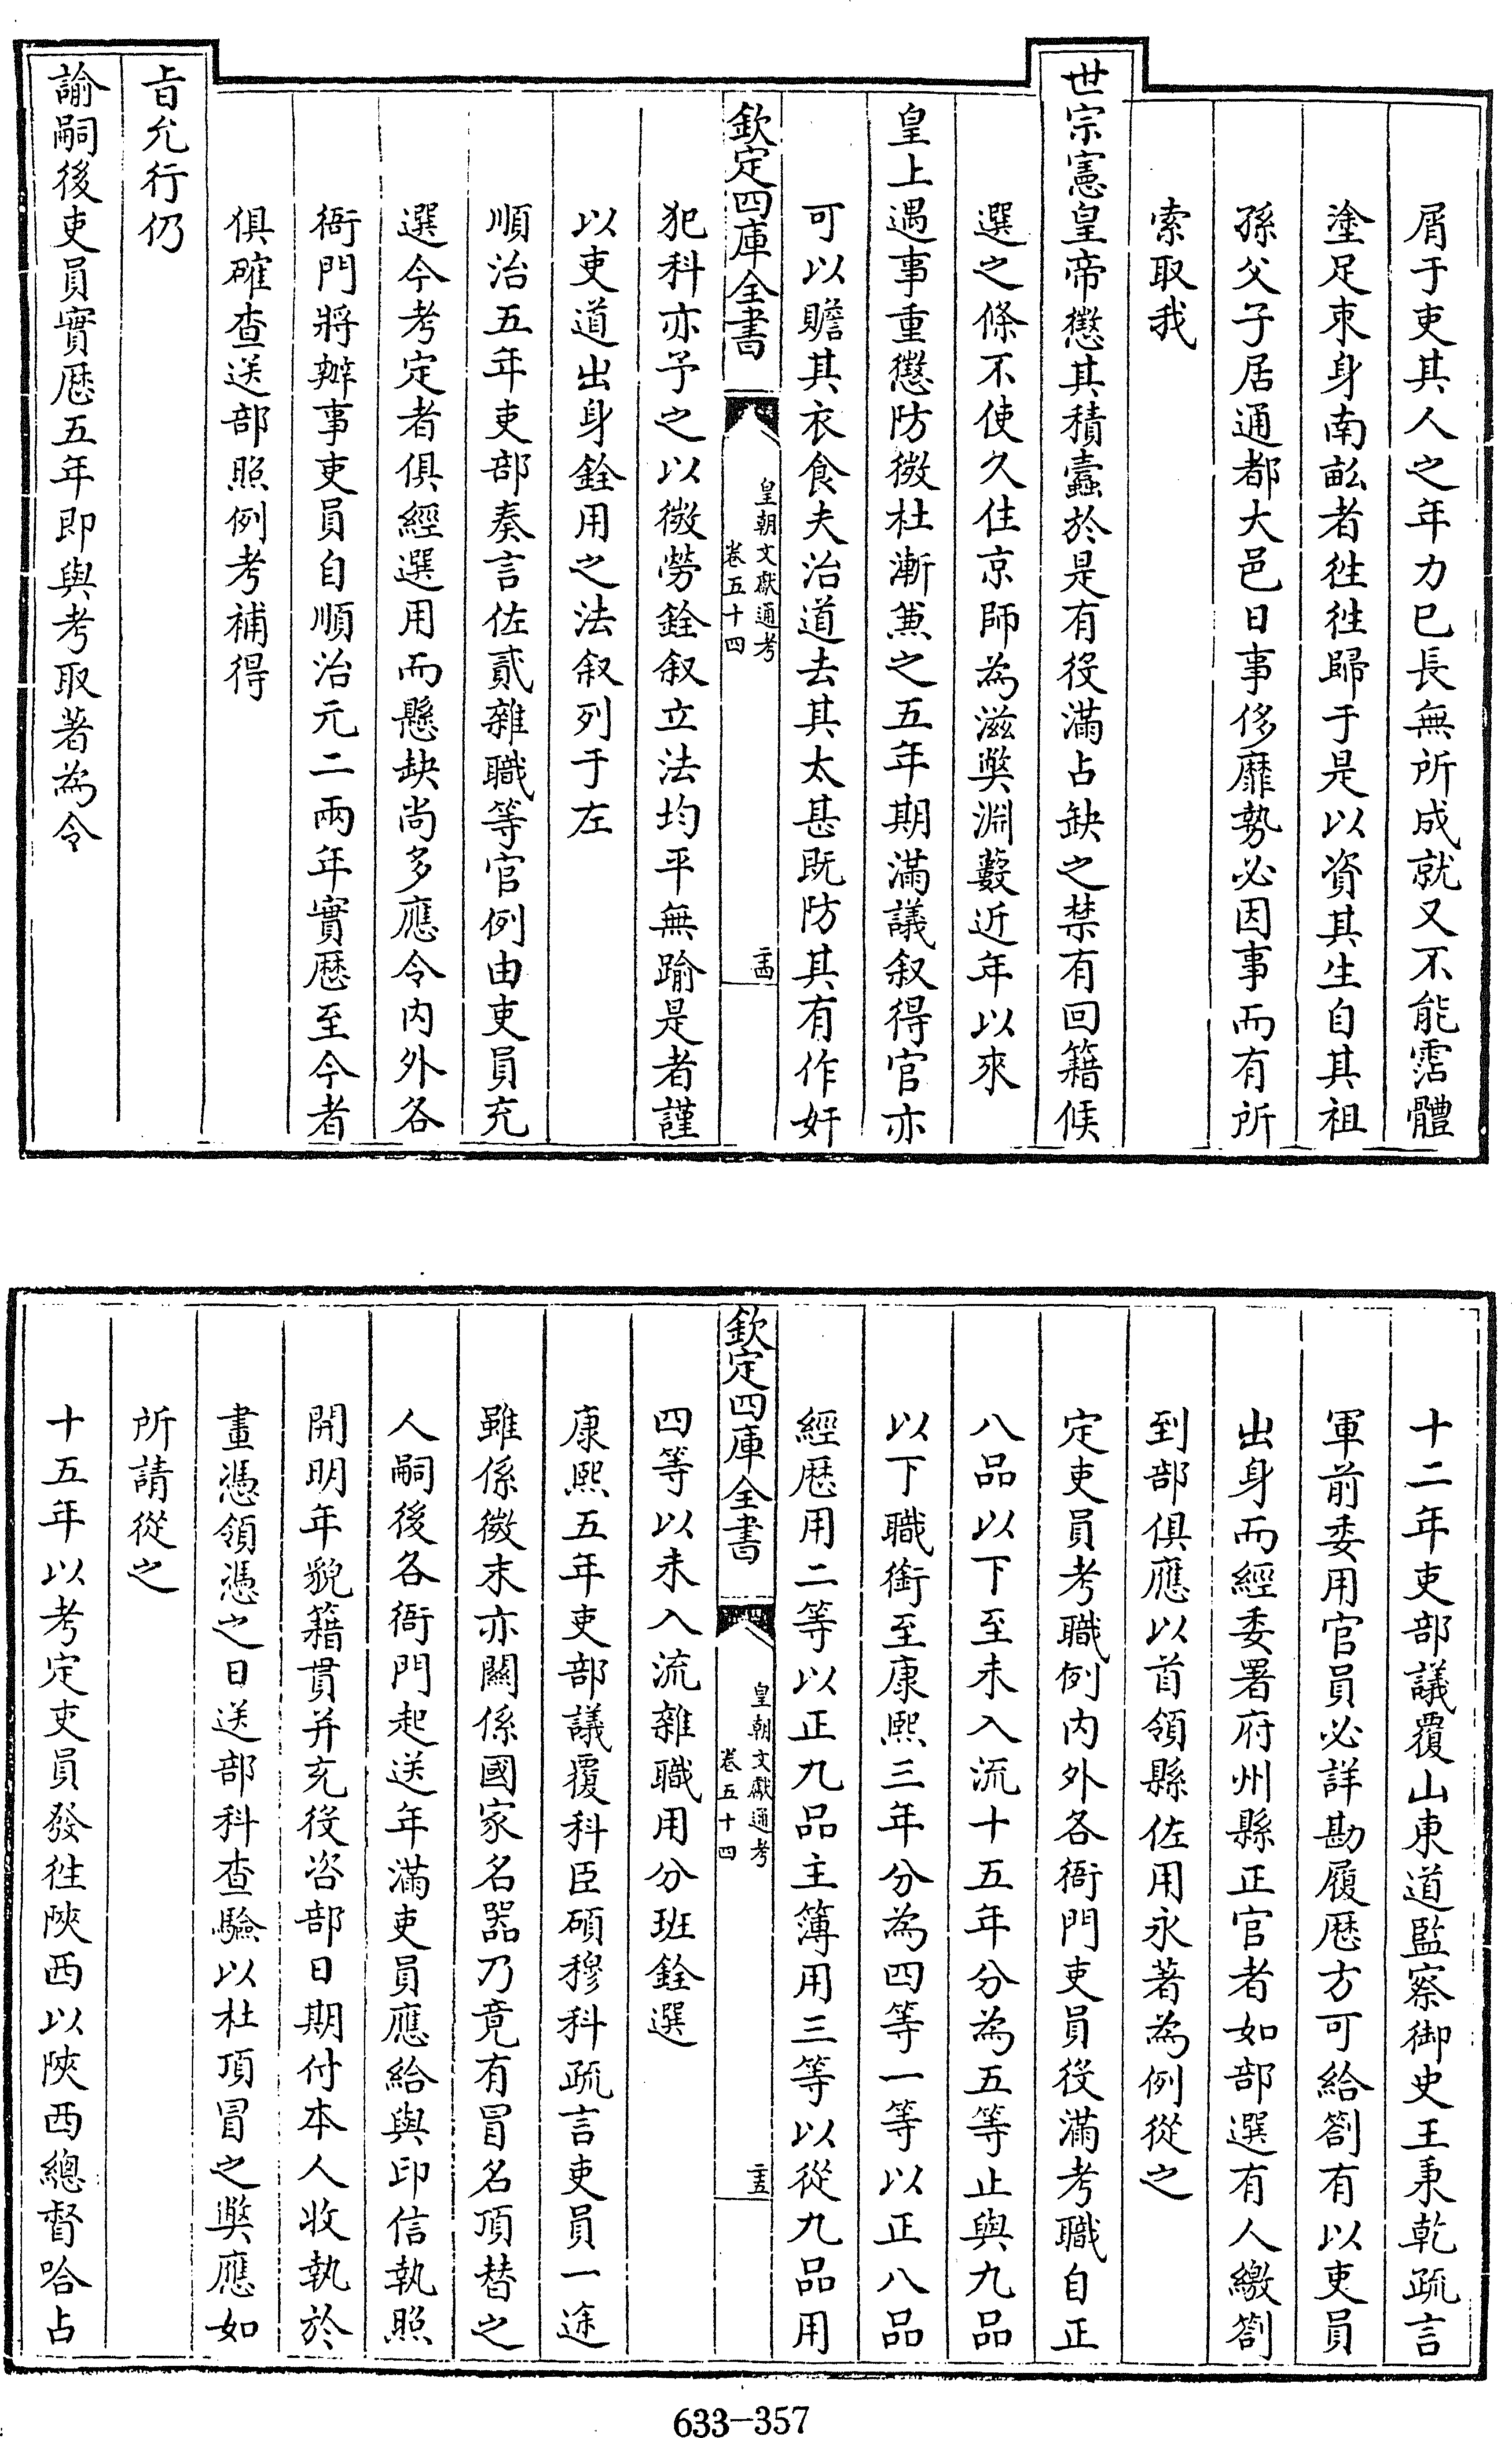 屑于吏其人之年力已長無所成就又不能霑體
塗足束身南畝者徃徃歸于是以資其生自其祖
孫父子居通都大邑日事侈靡勢必因事而有所
索取我
世宗憲皇帝懲其積蠹於是有役滿占缺之禁有回籍候
選之條不使久住京師為滋獘淵藪近年以來
皇上遇事重懲防微杜漸兼之五年期滿議叙得官亦
可以贍其衣食夫治道去其太甚既防其有作奸
欽定四庫全書
皇朝文獻通考
卷五十四
二十四
犯科亦予之以微勞銓叙立法均平無踰是者謹
以吏道出身銓用之法叙列于左
順治五年吏部奏言佐貳雜職等官例由吏員充
選今考定者俱經選用而懸缺尚多應令内外各
衙門將辦事吏員自順治元二兩年實歴至今者
俱確查送部照例考補得
㫖允行仍
諭嗣後吏員實歴五年即與考取著為令
十二年吏部議覆山東道監察御史王秉乾疏言
軍前委用官員必詳勘履歴方可給劄有以吏員
出身而經委署府州縣正官者如部選有人繳劄
到部俱應以首領縣佐用永著為例從之
定吏員考職例内外各衙門吏員役滿考職自正
八品以下至未入流十五年分為五等止與九品
以下職銜至康熙三年分為四等一等以正八品
經歴用二等以正九品主簿用三等以從九品用
欽定四庫全書
皇朝文獻通考
卷五十四
二十五
四等以未入流雜職用分班銓選
康熙五年吏部議覆科臣碩穆科疏言吏員一途
雖係微末亦關係國家名器乃竟有冒名頂替之
人嗣後各衙門起送年滿吏員應給與印信執照
開明年貌籍貫并充役咨部日期付本人收執於
畫憑領憑之日送部科查驗以杜頂冒之獘應如
所請從之
十五年以考定吏員發徃陜西以陜西總督哈占
633-357